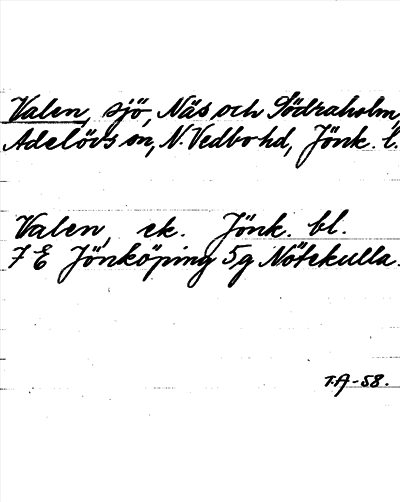 Valen, sjö, Näs och Södraholm,
Adelövs sn, N. Vedbo hd, Jönk. l.
Valen, ek. Jönk. bl.
7 E Jönköping 5g Nötekulla.
T.A-58.